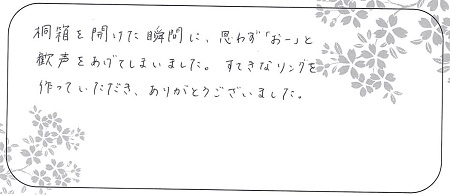 桐箱を開けた瞬間に、思わず「おー」と
歓声をあげてしまいました。すてきなリングを
作っていただき、ありがとうございました。